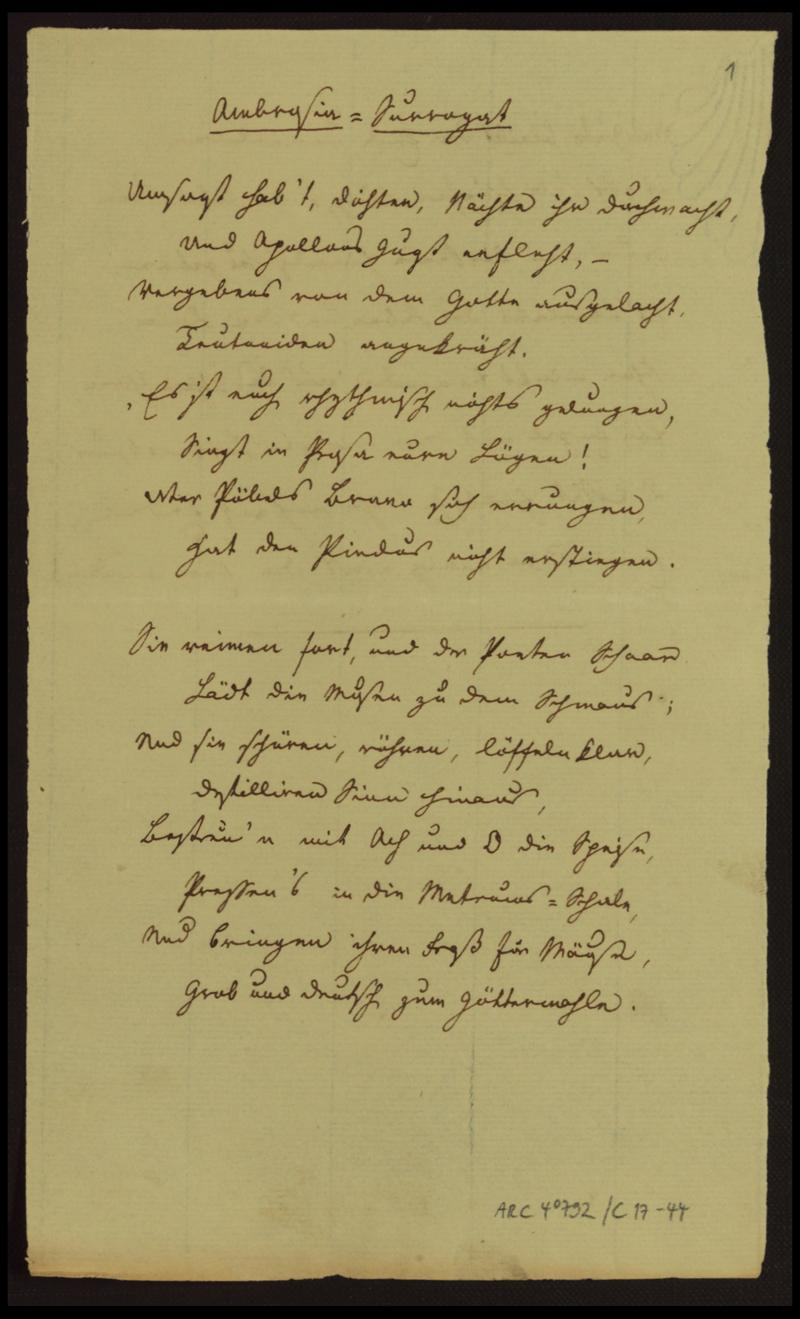 1
Ambrosia = Surrogat
Umsonst hab't, Dichter, Nächte ihr durchwacht,
Und Apollons Gunst erfleht, –
Vergebens von dem Gotte ausgelacht,
Teutoniden angekräht.
„Es ist euch rhythmisch nichts gelungen,
Singt in Prosa eure Lügen!
Wer Pöbels Bravo sich errungen,
Hat den Pindus nicht erstiegen.
Sie reimen fort, und der Poeten Schaar
Lädt die Musen zu dem Schmaus;
Und sie schüren, rühren, löffeln klar,
Destilliren Sinn hinaus,
Bestreu'n mit Ach und O die Speise,
Pressen's in die Metrums = Schale,
Und bringen ihren Fraß für Mäuse,
Grob und deutsch zum Göttermahle.
ARC 4°792/C17-44